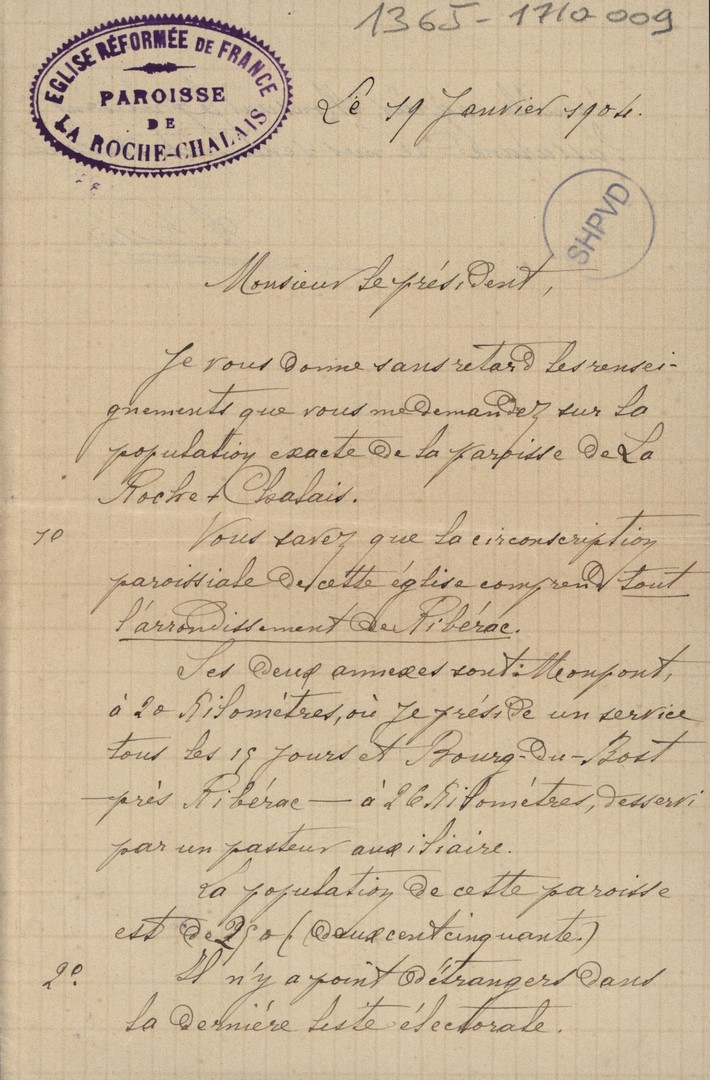 1365-1710 009
EGLISE RÉFORMÉE DE FRANCE
PAROISSE
DE
LA ROCHE-CHALAIS
Le 19 Janvier 1904.
SHPVD
Monsieur le président,
Je vous donne sans retard les rensei-
gnements que vous me demandez sur la
population exacte de la paroisse de La
Roche-Chalais.
1º Vous savez que la circonscription
paroissiale de cette église comprend tout
l'arrondissement de Ribérac.
Ses deux annexes sont: Monpont,
à 20 Kilomètres, où je préside un service
tous les 15 jours et Bourg-du-Bost
-près Ribérac- à 26 Kilomètres, desservi
par un pasteur auxiliaire.
La population de cette paroisse
est de 250 (deux cent cinquante.)
2º. Il n'y a point d'étrangers dans
la dernière liste électorale.